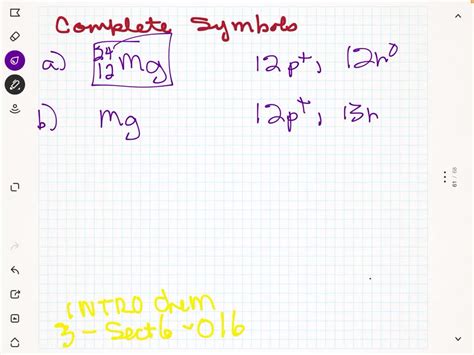 Complete Symbols
a) ²⁴₁₂Mg 12p⁺, 12n⁰
b) Mg 12p⁺, 13n
INTRO Chem
3-Sect6-016